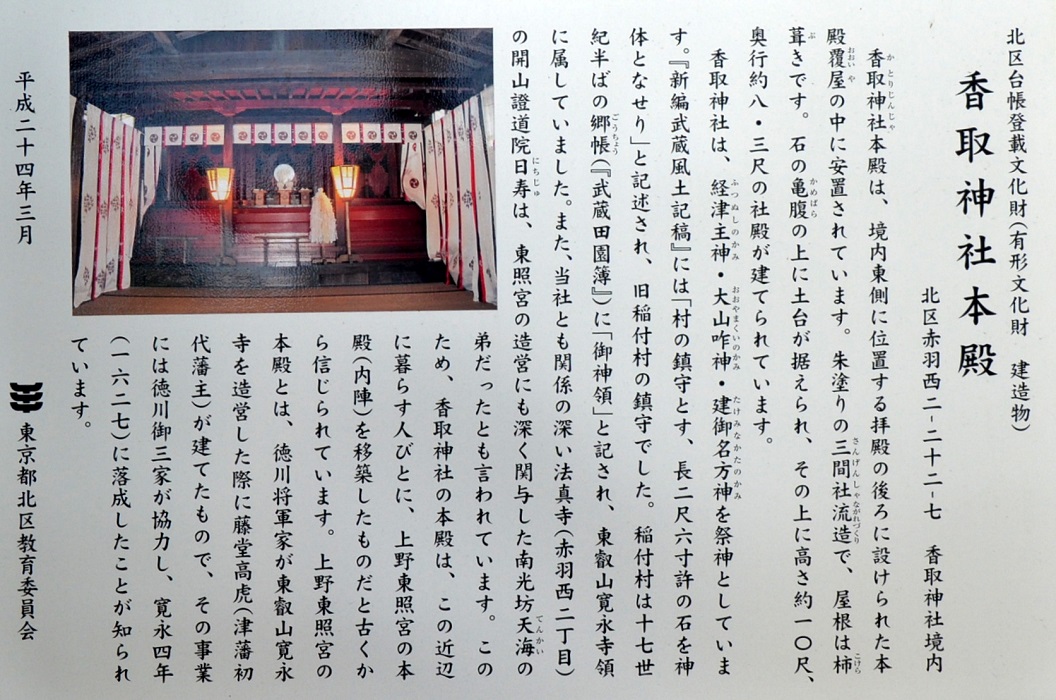 北区台帳登載文化財(有形文化財　建造物)
香取神社本殿
北区赤羽西二-二十二-七　香取神社境内
香取神社本殿は、境内東側に位置する拝殿の後ろに設けられた本
殿覆屋の中に安置されています。朱塗りの三間社流造で、屋根は柿
葺きです。石の亀腹の上に土台が据えられ、その上に高さ約一〇尺、
奥行約八・三尺の社殿が建てられています。
香取神社は、経津主神・大山咋神・建御名方神を祭神としていま
す。『新編武蔵風土記稿』には「村の鎮守とす、長二尺六寸許の石を神
体となせり」と記述され、旧稲付村の鎮守でした。稲付村は十七世
紀半ばの郷帳(『武蔵田園簿』)に「御神領」と記され、東叡山寛永寺領
に属していました。また、当社とも関係の深い法真寺(赤羽西二丁目)
の開山證道院日寿は、東照宮の造営にも深く関与した南光坊天海の
弟だったとも言われています。この
ため、香取神社の本殿は、この近辺
に暮らす人びとに、上野東照宮の本
殿(内陣)を移築したものだと古くか
ら信じられています。上野東照宮の
本殿とは、徳川将軍家が東叡山寛永
寺を造営した際に藤堂高虎(津藩初
代藩主)が建てたもので、その事業
には徳川御三家が協力し、寛永四年
(一六二七)に落成したことが知られ
ています。
平成二十四年三月
東京都北区教育委員会